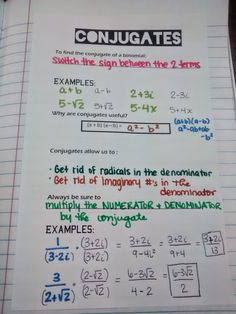 CONJUGATES
To find the conjugate of a binomial:
Switch the sign between the 2 terms
EXAMPLES:
a+b a-b 2+3i 2-3i
5-√2 5+√2 5-4x 5+4x
Why are conjugates useful?
(a + b) (a – b) = a² - b²
(a+b)(a-b)
a²-ab+ab
-b²
Conjugates allow us to :
• Get rid of radicals in the denominator
• Get rid of imaginary #'s in the
denominator
Always be sure to
multiply the NUMERATOR + DENOMINATOR
by the conjugate
EXAMPLES:
1/(3-2i) • (3+2i)/(3+2i) = 3+2i/9-4i² = 3+2i/9+4 = 3+2i/13
3/(2+√2) • (2-√2)/(2-√2) = 6-3√2/4-2 = 6-3√2/2